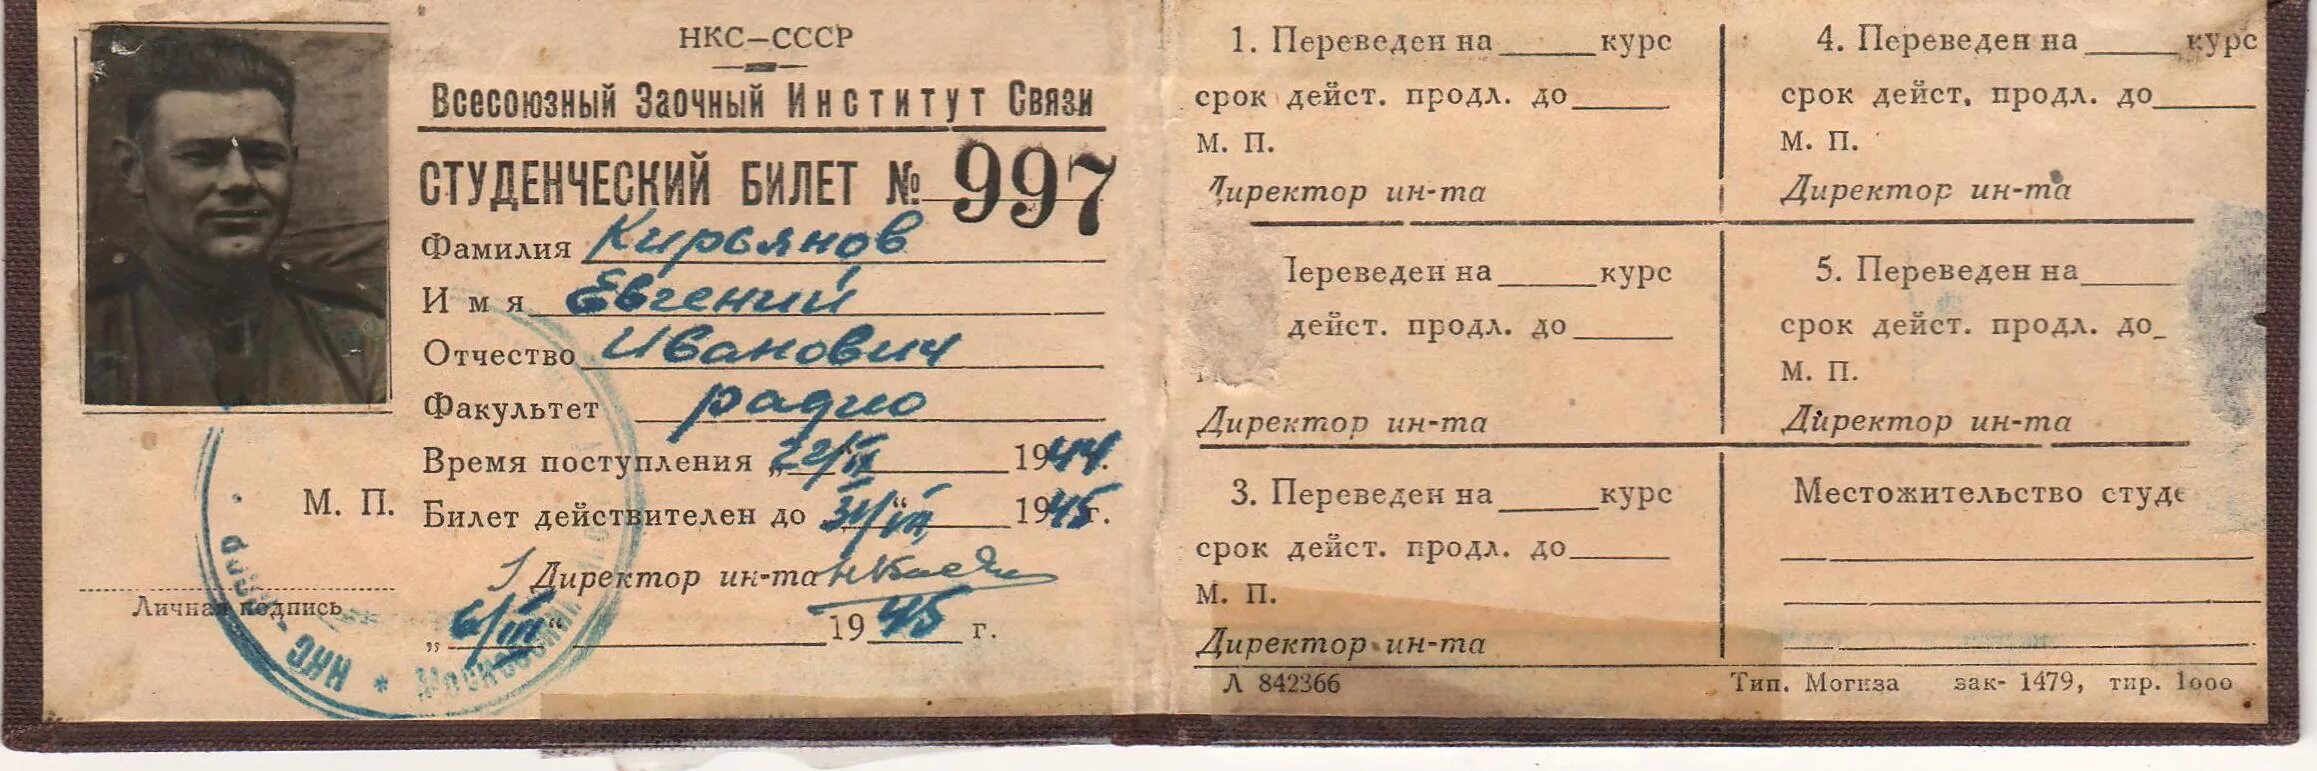 НКС—СССР
Всесоюзный Заочный Институт Связи
СТУДЕНЧЕСКИЙ БИЛЕТ № 997
Фамилия Кирьянов
Имя Евгений
Отчество Иванович
Факультет радио
Время поступления „22/IX“ 1944г.
М. П.
Билет действителен до 31/VII“ 1945г.
Директор ин-та
Личная подпись
„6/III“ 1945 г.
НКС - СССР * МОСКОВСКИЙ
1. Переведен на ____ курс
срок дейст. продл. до____
М. П.
Директор ин-та
Переведен на ____ курс
дейст. продл. до____
Директор ин-та
3. Переведен на ____ курс
срок дейст. продл. до____
М. П.
Директор ин-та
Л 842366
4. Переведен на ____ курс
срок дейст. продл. до____
М. П.
Директор ин-та
5. Переведен на____
срок дейст. продл. до_
М. П.
Директор ин-та
Местожительство студе
Тип. Могиза зак- 1479, тир. 1000